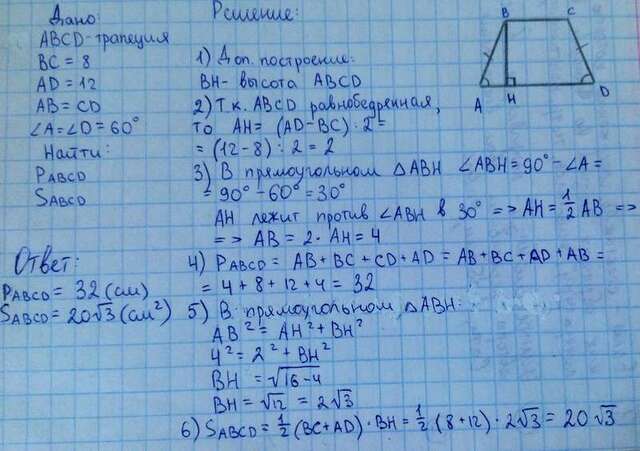 Дано:
ABCD-трапеция
BC = 8
AD = 12
AB = CD
∠A = ∠D = 60°
Найти:
P_ABCD
S_ABCD
Ответ:
P_ABCD = 32 (см)
S_ABCD = 20√3 (см²)
Решение:
1) Доп. построение:
BH - высота ABCD
2) Т.к. ABCD равнобедренная,
то AH = (AD-BC) : 2 =
= (12-8) : 2 = 2
3) В прямоугольном △ABH ∠ABH = 90° - ∠A =
= 90° - 60° = 30°
AH лежит против ∠ABH в 30° => AH = 1/2 AB =>
=> AB = 2 · AH = 4
4) P_ABCD = AB + BC + CD + AD = AB + BC + AD + AB =
= 4 + 8 + 12 + 4 = 32
5) В прямоугольном △ABH:
AB² = AH² + BH²
4² = 2² + BH²
BH = √16-4
BH = √12 = 2√3
6) S_ABCD = 1/2 (BC + AD) · BH = 1/2 (8 + 12) · 2√3 = 20√3
B
C
A
H
D